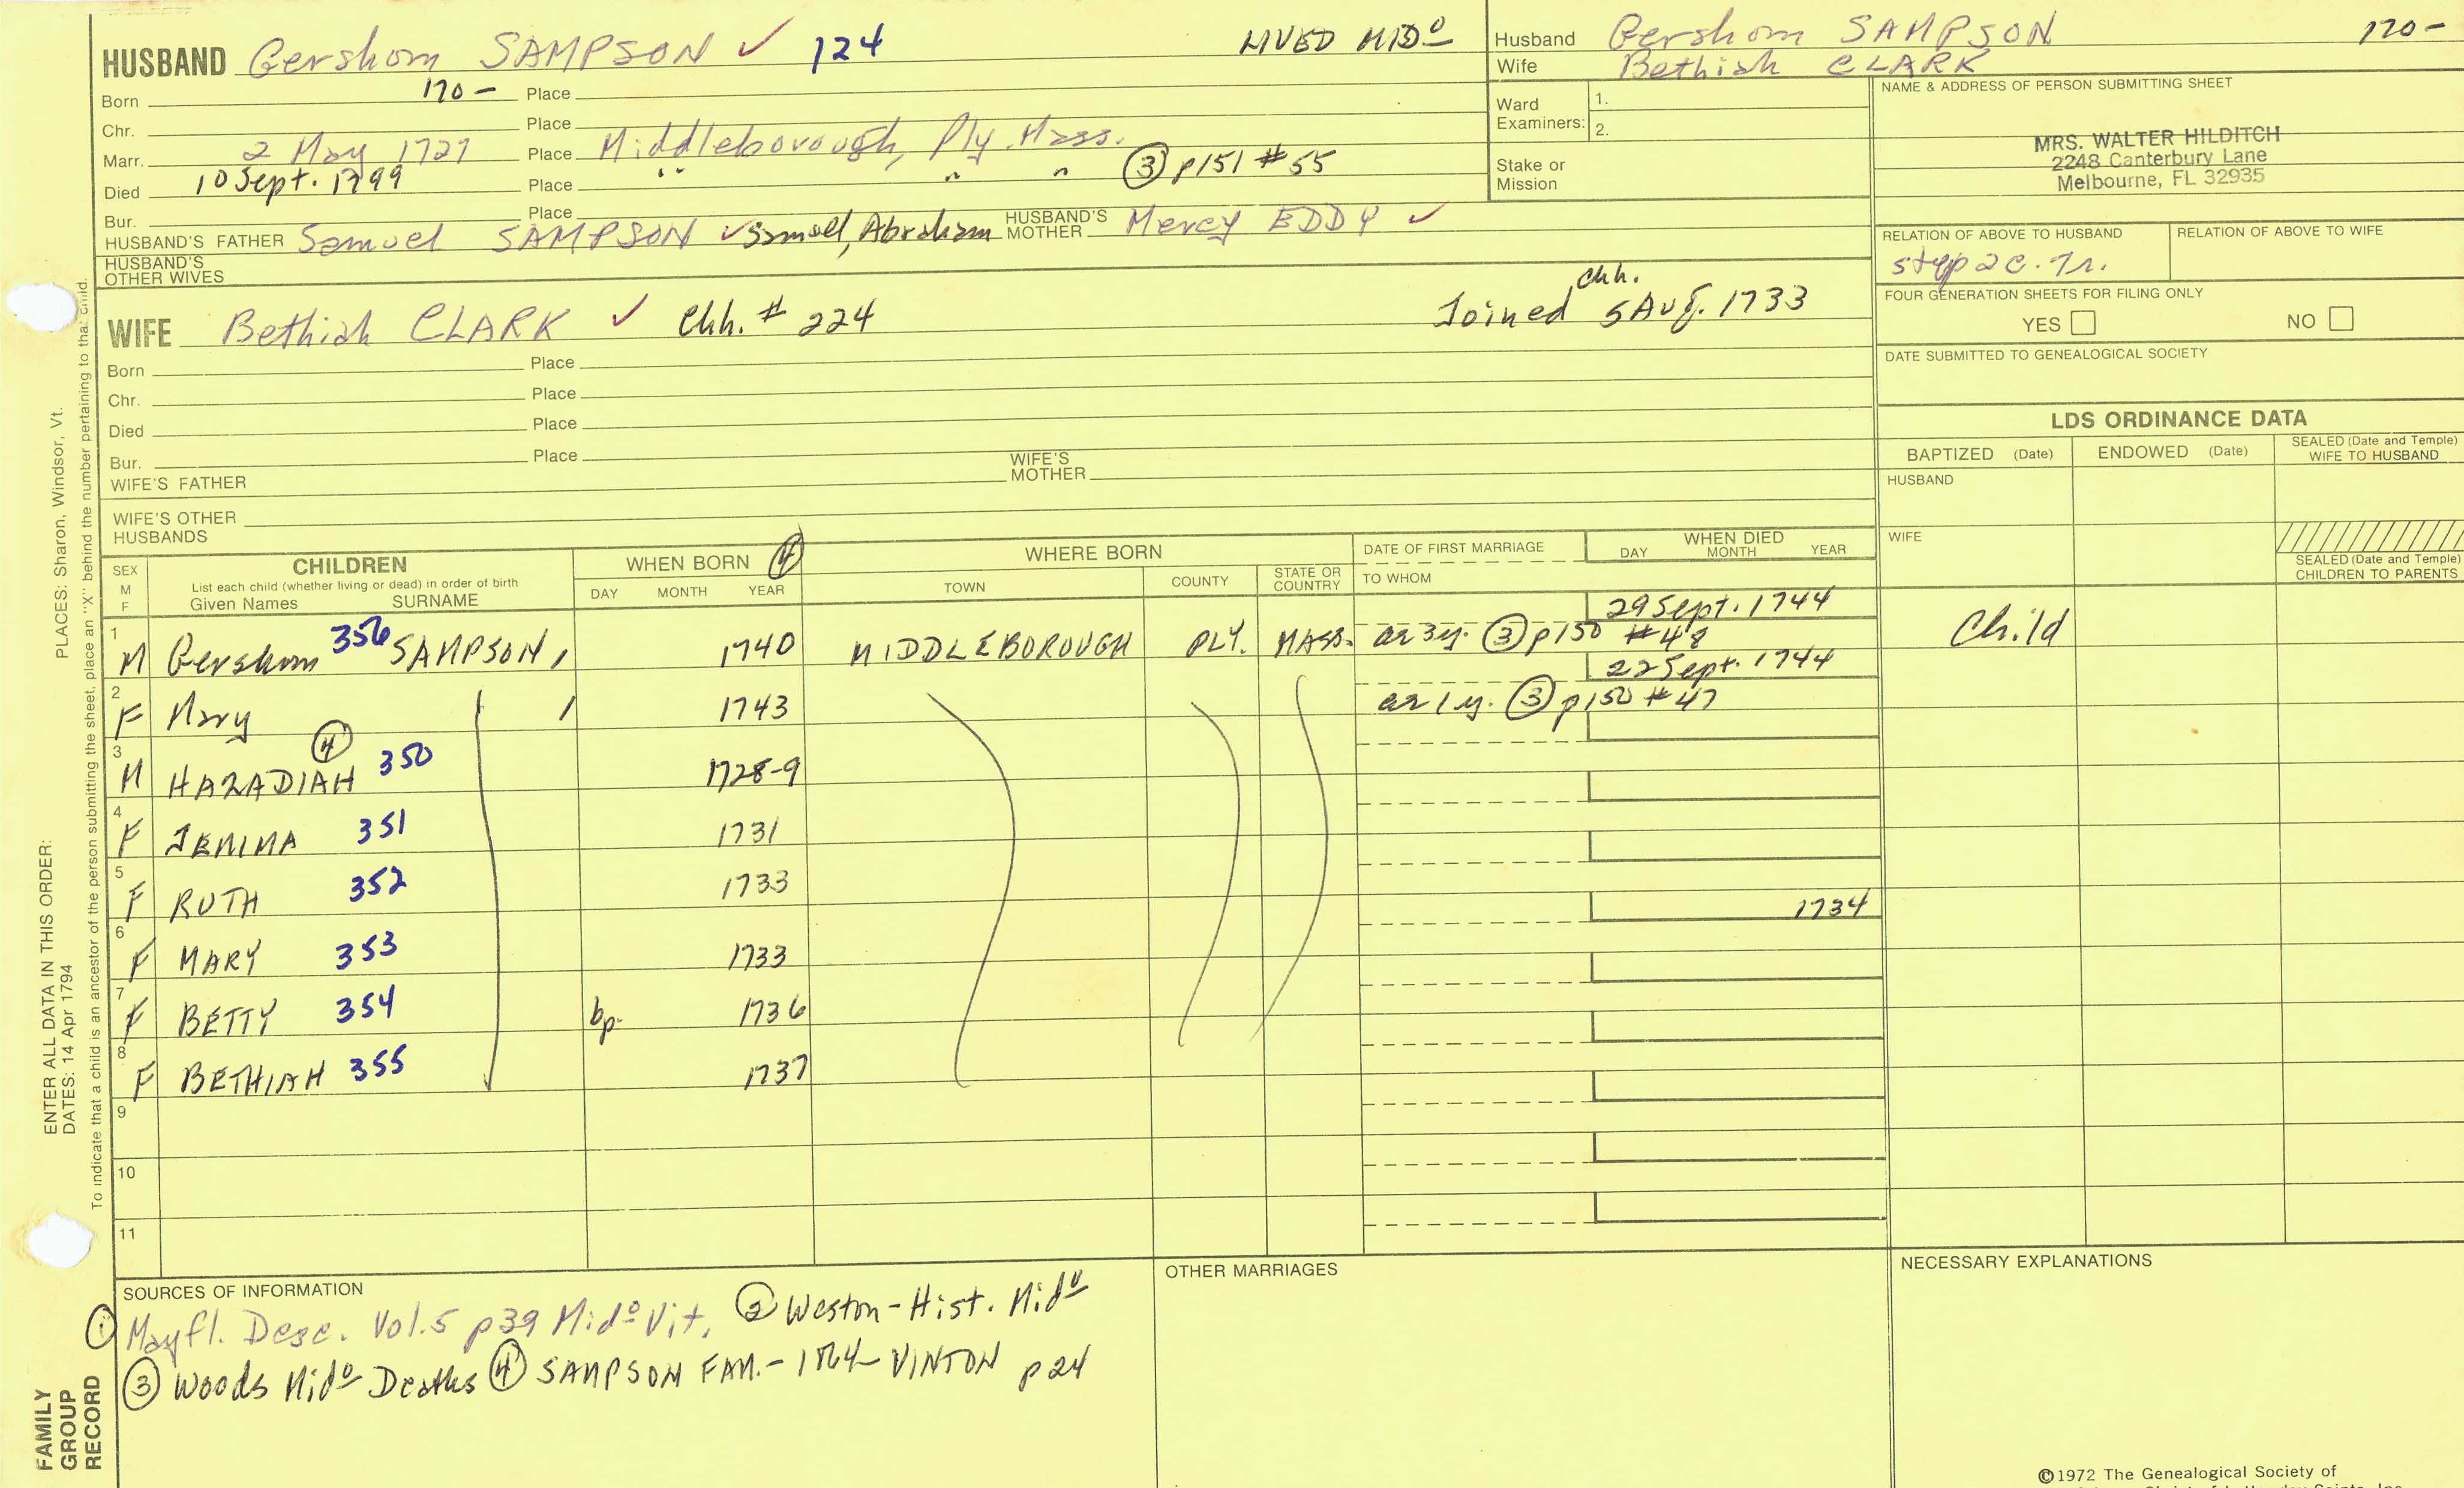 HUSBAND Gershom SAMPSON ✓ 124 LIVED MIDO
Born 170- Place
Chr. Place
Marr. 2 May 1727 Place Middleborough, Ply. Mass.
Died 10 Sept. 1799 Place " " " ③ p151 #55
Bur. Place
HUSBAND'S FATHER Samuel SAMPSON ✓ Samuel, Abraham HUSBAND'S MOTHER Mercy EDDY ✓
HUSBAND'S OTHER WIVES
WIFE Bethiah CLARK ✓ Chh. # 224 Joined Chh. 5 Aug. 1733
Born Place
Chr. Place
Died Place
Bur. Place
WIFE'S FATHER WIFE'S MOTHER
WIFE'S OTHER HUSBANDS
Husband Gershom SAMPSON 170-
Wife Bethiah CLARK
Ward Examiners: 1.
2.
Stake or Mission
NAME & ADDRESS OF PERSON SUBMITTING SHEET
MRS. WALTER HILDITCH
2248 Canterbury Lane
Melbourne, FL 32935
RELATION OF ABOVE TO HUSBAND RELATION OF ABOVE TO WIFE
step 2c. 7r.
FOUR GENERATION SHEETS FOR FILING ONLY
YES NO
DATE SUBMITTED TO GENEALOGICAL SOCIETY
LDS ORDINANCE DATA
BAPTIZED (Date) ENDOWED (Date) SEALED (Date and Temple) WIFE TO HUSBAND
HUSBAND
WIFE
SEALED (Date and Temple) CHILDREN TO PARENTS
SEX M F CHILDREN
List each child (whether living or dead) in order of birth
Given Names SURNAME
WHEN BORN ④
DAY MONTH YEAR
WHERE BORN
TOWN COUNTY STATE OR COUNTRY
DATE OF FIRST MARRIAGE
TO WHOM
WHEN DIED
DAY MONTH YEAR
1 M Gershom 356 SAMPSON, 1740 MIDDLEBOROUGH PLY. MASS. ae 3y. ③ p150 #48 29 Sept. 1744 Child
2 F Mary 1743 ae 1y. ③ p150 #47 22 Sept. 1744
3 M HAZADIAH ④ 350 1728-9
4 F JEMIMA 351 1731
5 F RUTH 352 1733
6 F MARY 353 1733 1734
7 F BETTY 354 bp. 1736
8 F BETHIAH 355 1737
9
10
11
SOURCES OF INFORMATION
① Mayfl. Desc. Vol.5 p39 Mido Vit, ② Weston-Hist. Mido
③ Woods Mido Deaths ④ SAMPSON FAM.- 1864 VINTON p24
OTHER MARRIAGES
NECESSARY EXPLANATIONS
©1972 The Genealogical Society of
PLACES: Sharon, Windsor, Vt.
ENTER ALL DATA IN THIS ORDER:
DATES: 14 Apr 1794
To indicate that a child is an ancestor of the person submitting the sheet, place an "X" behind the number pertaining to that child.
FAMILY
GROUP
RECORD